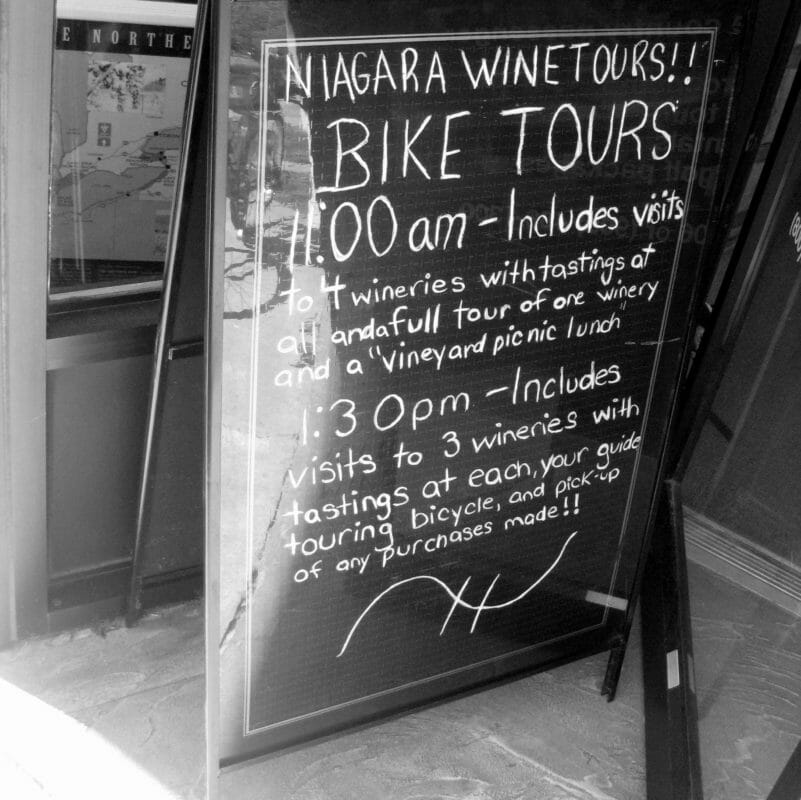 E NORTHE
NIAGARA WINETOURS!!
BIKE TOURS
11:00 am - Includes visits
to 4 wineries with tastings at
all and a full tour of one winery
and a "vineyard picnic lunch"
1:30pm - Includes
visits to 3 wineries with
tastings at each, your guide
touring bicycle, and pick-up
of any purchases made!!